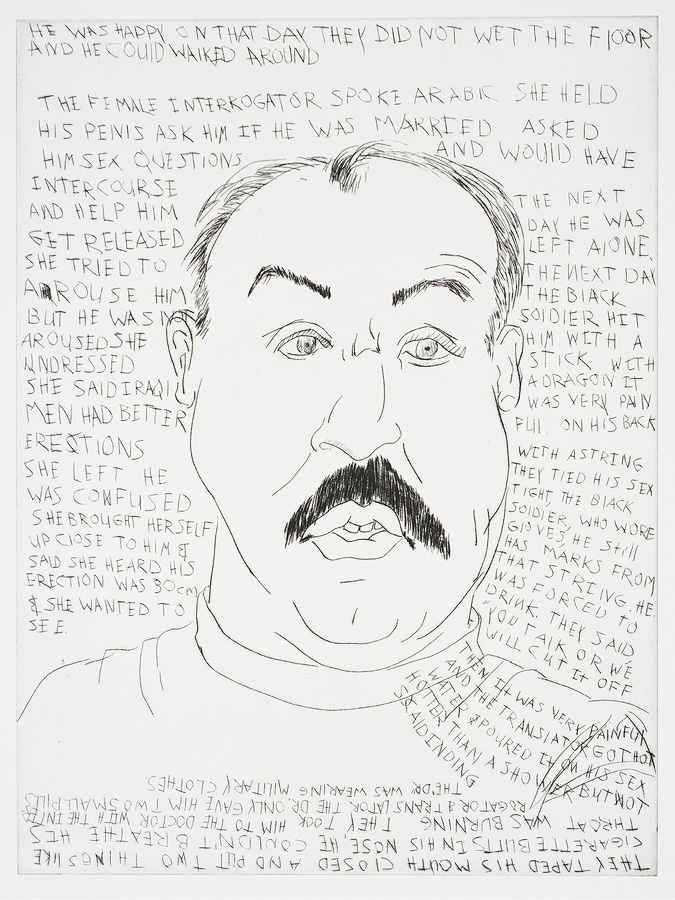 HE WAS HAPPY ON THAT DAY THEY DID NOT WET THE FlOOR
AND HE COUlD WAlKED AROUND
THE FEMALE INTERROGATOR SPOKE ARABIC SHE HELD
HIS PENIS ASK HIM IF HE WAS MARRIED ASKED
HIM SEX QUESTIONS AND WOUlD HAVE
INTERCOURSE
AND HELP HIM
GET RELEASED
SHE TRIED TO
AROUSE HIM
BUT HE WAS NOT
AROUSED SHE
UNDRESSED
SHE SAID IRAQI
MEN HAD BETTER
ERECTIONS
SHE LEFT HE
WAS CONFUSED
SHE BROUGHT HERSELF
UP CLOSE TO HIM &
SAID SHE HEARD HIS
ERECTION WAS 30cm
& SHE WANTED TO
SEE.
THE NEXT
DAY HE WAS
LEFT AlONE.
THE NEXT DAY
THE BlACK
SOlDIER HIT
HIM WITH A
STICK WITH
A DRAGON IT
WAS VERY PAIN
FUl. ON HIS BACK
WITH A STRING
THEY TIED HIS SEX
TIGHT THE BlACK
SOlDIER, WHO WORE
GlOVES, HE STIll
HAS MARKS FROM
THAT STRING. HE
WAS FORCED TO
DRINK. THEY SAID
YOU TAlK OR WE
WIll CUT IT OFF
THEN IT WAS VERY PAINFUl
AND THE TRANSlATOR GOT HOT
WATER & POURED IT ON HIS SEX
HOTTER THAN A SHOWER BUT NOT
SCAlDINDING
THEY TAPED HIS MOUTH CLOSED AND PUT TWO THINGS lIKE
CIGARETTE BUTTS IN HIS NOSE HE COUlDN'T BREATHE HIS
THROAT WAS BURNING THEY TOOK HIM TO THE DOCTOR WITH THE INTER
ROGATOR & TRANSlATOR THE DR. ONlY GAVE HIM TWO SMAll PIllS
THE DR. WAS WEARING MIlITARY ClOTHES